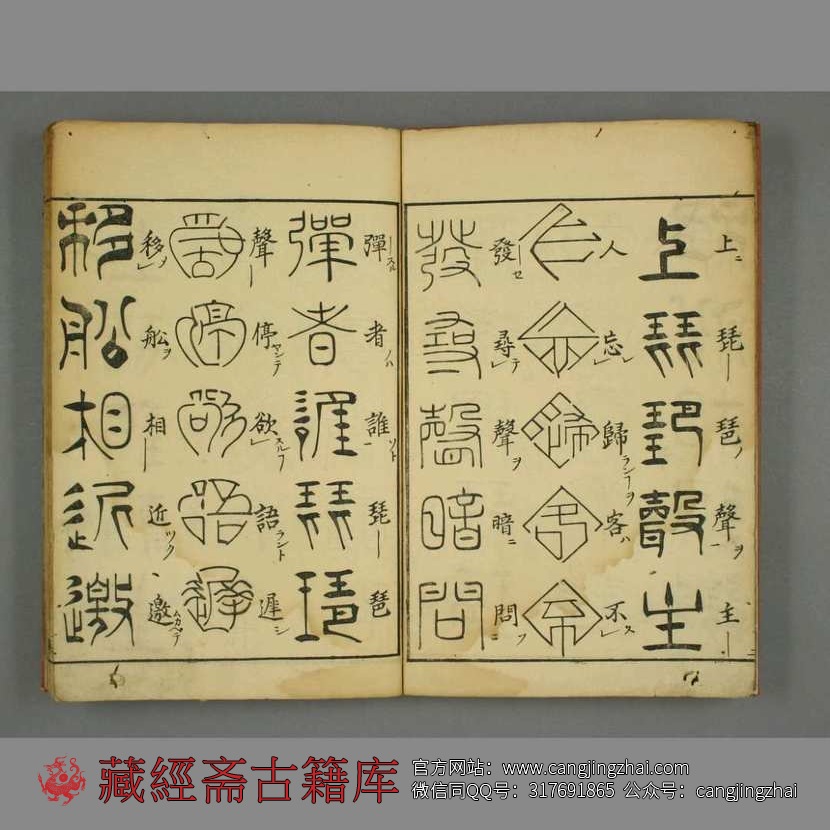 上ニ 琵ー 琶ノ 聲ヲ 主ー
人 忘レ 歸ランヿヲ 客ハ 不ス
發ーセ 尋テ 聲ヲ 暗ニ 問フ
彈ースル 者ノハ 誰ソト 琵ー 琶
聲ー 停ヤンテ 欲スルフ 語ラント 遲シ
移ヲ 船ヲ 相ー 近ツク 邀ムカヘテ
藏經斋古籍库
官方网站：www.cangjingzhai.com
微信同QQ号：317691865 公众号：cangjingzhai